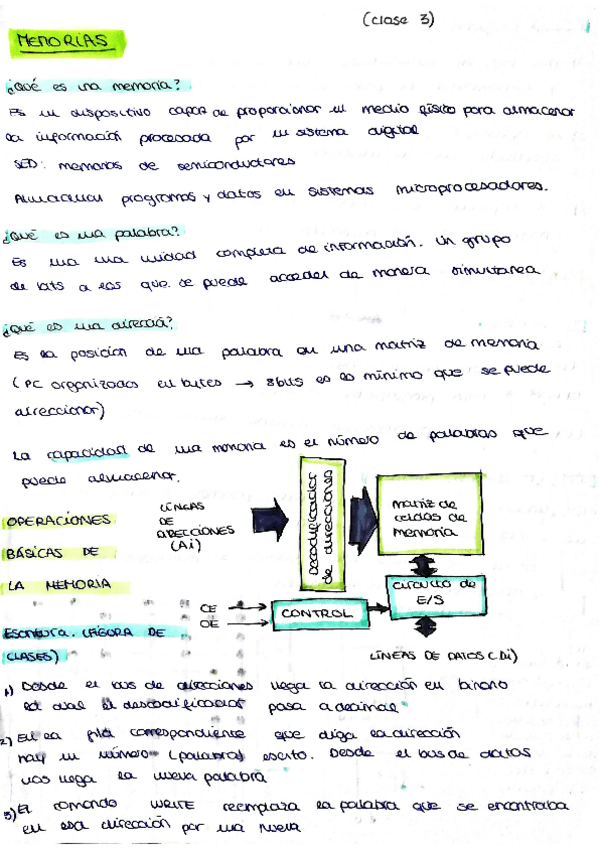 (clase 3)
MEMORIAS
¿Qué es una memoria?
Es un dispositivo capaz de proporcionar un medio físico para almacenar
la información procesada por un sistema digital
SED: memorias de semiconductores
Almacenan programas y datos en sistemas microprocesadores.
¿Qué es una palabra?
Es una una unidad completa de información. Un grupo
de bits a los que se puede acceder de manera simultanea
¿Qué es una dirección?
Es la posición de una palabra en una matriz de memoria
(PC organizados en bytes → 8bits es lo mínimo que se puede
direccionar)
La capacidad de una memoria es el número de palabras que
puede almacenar.
OPERACIONES
BÁSICAS DE
LA MEMORIA
LÍNEAS
DE
DIRECCIONES
(Ai)
Decodificador
de direcciones
Matriz de
celdas de
Memoria
CE
OE
CONTROL
circuito de
E/S
LÍNEAS DE DATOS (Di)
Escritura. (FIGURA DE
CLASES)
1) Desde el bus de direcciones llega la dirección en binario
el cual el descodificador pasa a decimal
2) En la fila correspondiente que diga la dirección
hay un número (palabra) escrito. Desde el bus de datos
nos llega la nueva palabra
3) El comando WRITE reemplaza la palabra que se encontraba
en esa dirección por una nueva